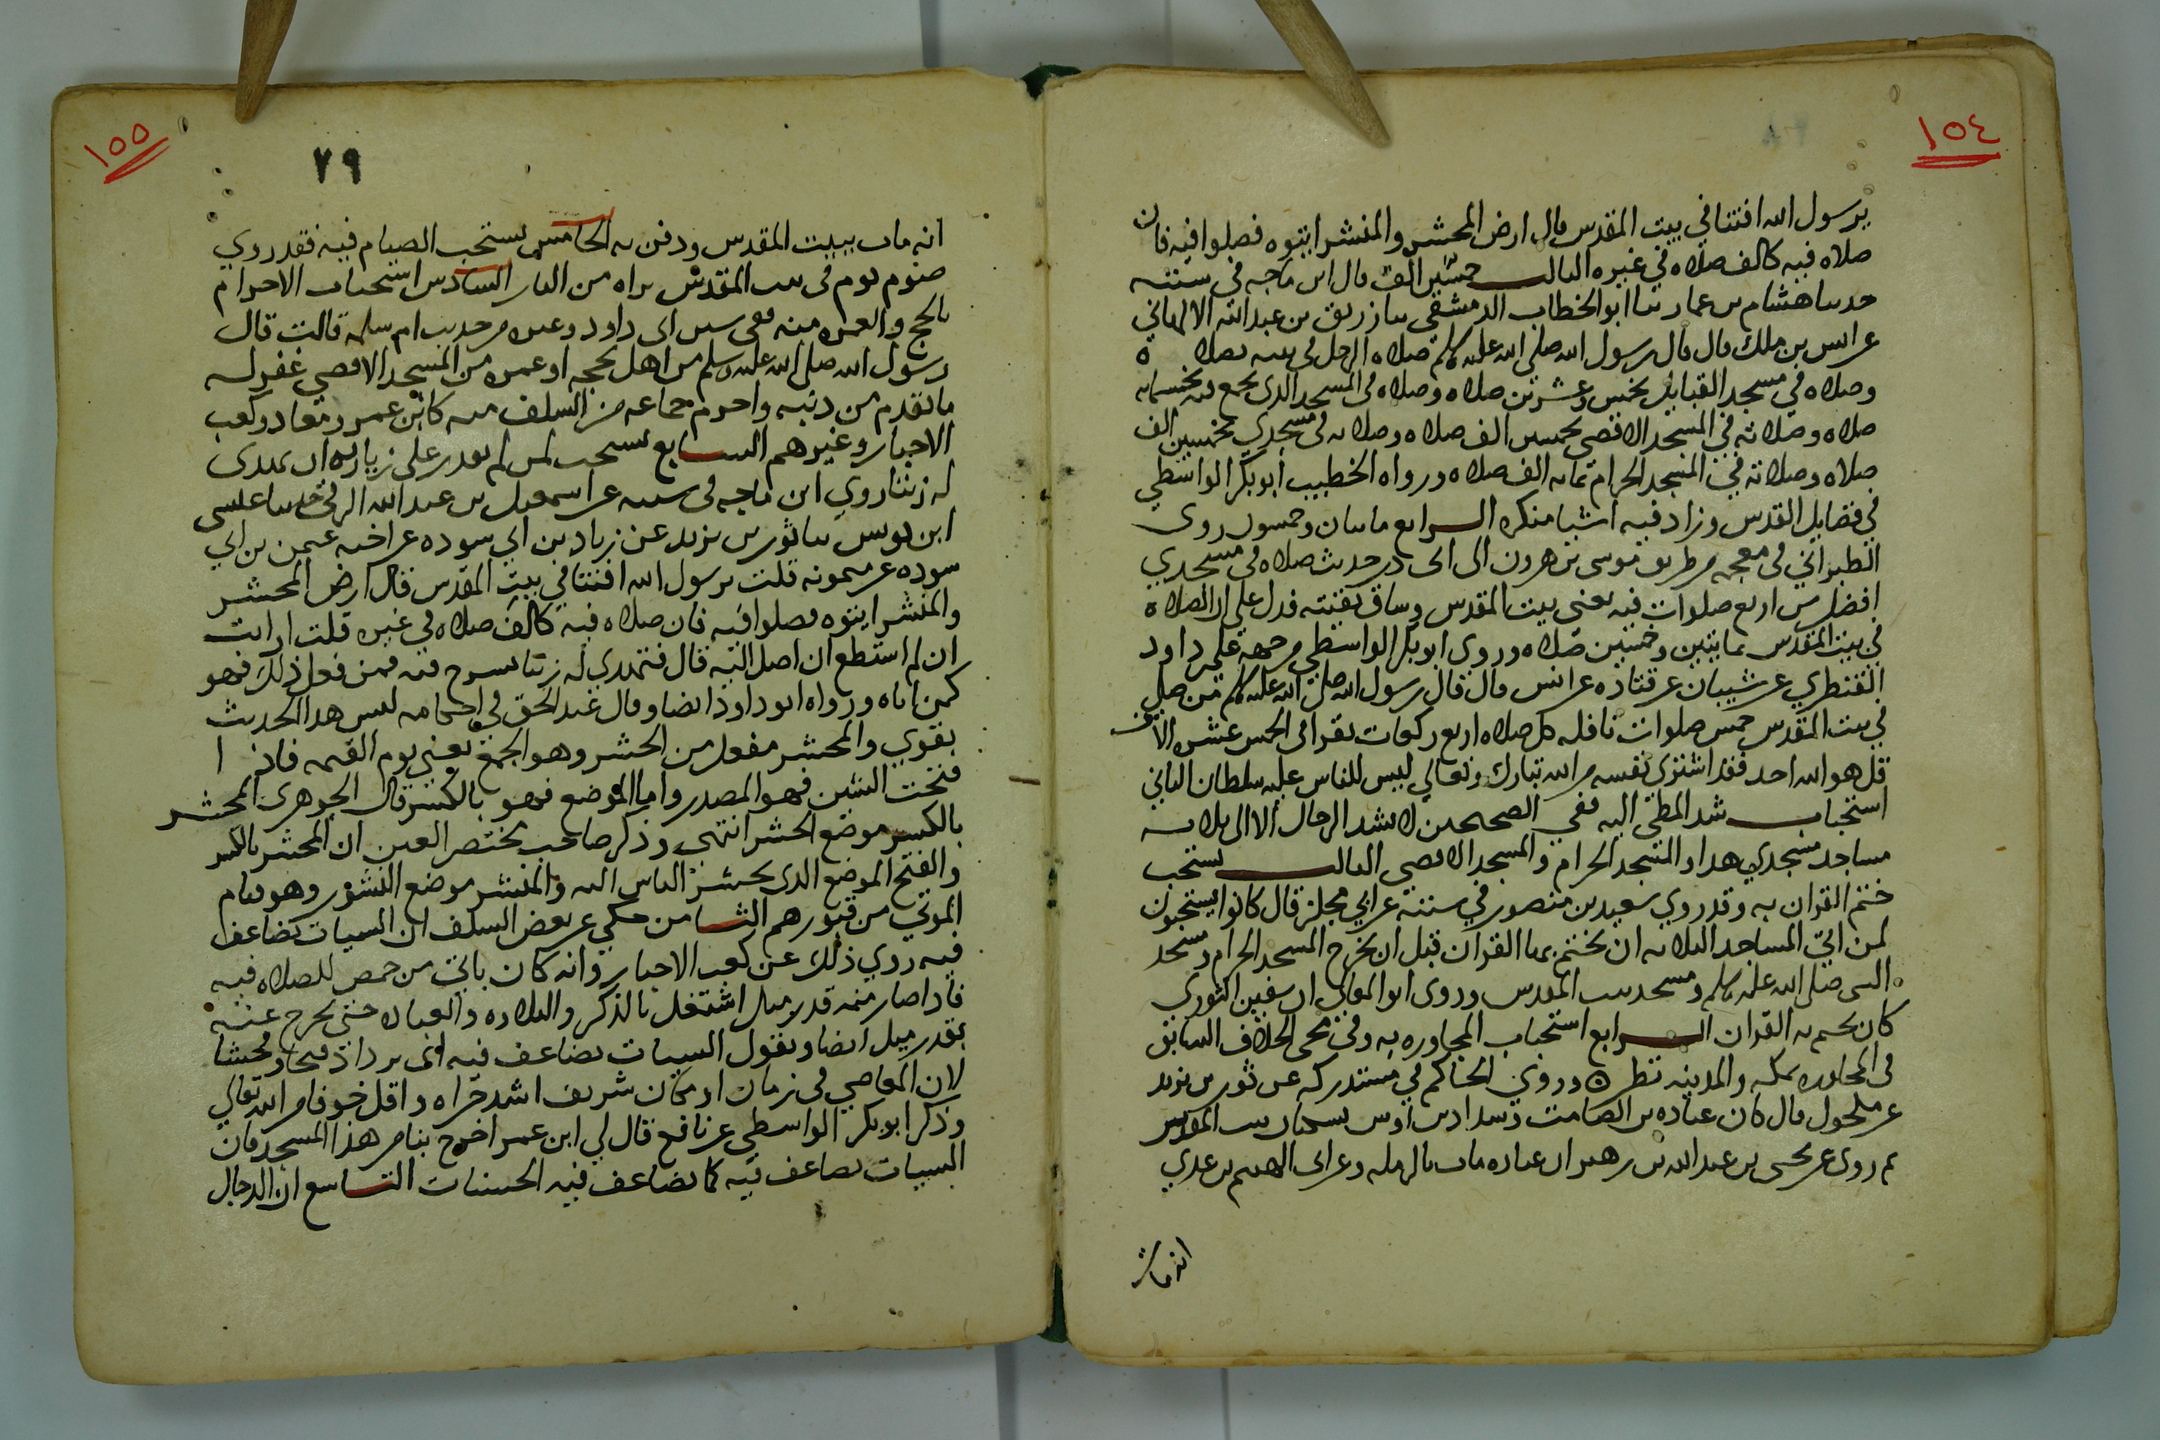 ١٥٤
يرسول الله افتنا في بيت المقدس قال ارض المحشر والمنشر ايتوه فصلوا فيه فان
صلاه فيه كالف صلاه في غيره الثالث خمسين الف قال ابن ماجه في سننه
حدثنا هشام بن عمار ثنا ابو الخطاب الدمشقي ثنا زريق بن عبد الله الالهاني
عن انس بن ملك قال قال رسول الله صلى الله عليه وسلم صلاه الرجل في بيته بصلاه
وصلاه في مسجد القبايل بخمس وعشرين صلاه وصلاه في المسجد الذي يجمع فيه بخمسمايه
صلاه وصلاته في المسجد الاقصى بخمسين الف صلاه وصلاته في مسجدي بخمسين الف
صلاه وصلاته في المسجد الحرام بمايه الف صلاه ورواه الخطيب ابو بكر الواسطي
في فضايل القدس وزاد فيه اشيا منكره الرابع مايتان وخمسون روى
الطبراني في معجمه من طريق موسى بن هرون الى ابى ذر حديث صلاه في مسجدي
افضل من اربع صلوات فيه يعني بيت المقدس وساق بقيته فدل على ان الصلاه
في بيت المقدس بمايتين وخمسين صلاه وروي ابو بكر الواسطي من جهة علي بن داود
القنطري عن شيبان عن قتاده عن انس قال قال رسول الله صلى الله عليه وسلم من صلى
في بيت المقدس خمس صلوات نافله كل صلاه اربع ركعات يقرا في الخمس عشره الاف
قل هو الله احد فقد اشترى نفسه من الله تبارك وتعالي ليس للناس عليه سلطان الثاني
استحباب شد المطي اليه ففي الصحيحين لا تشد الرحال الا الى ثلاثه
مساجد مسجدي هذا والمسجد الحرام والمسجد الاقصي الثالث يستحب
ختم القران به وقد روي سعيد بن منصور في سننه عن ابي مجلز قال كانوا يستحبون
لمن اتي المساجد الثلاثه ان يختم بها القران قبل ان يخرج المسجد الحرام ومسجد
النبى صلى الله عليه وسلم ومسجد بيت المقدس وروى ابو المعالي ان سفين الثوري
كان يختم به القران الرابع استحباب المجاوره به وفي مجى الخلاف السابق
في المجاوره بمكه والمدينه نظر ه وروي الحاكم في مستدركه عن ثور بن يزيد
عن مكحول قال كان عباده بن الصامت وشداد بن اوس يسكنان بيت المقدس
ثم روى عن يحيى بن عبد الله بن بكير ان عباده مات بالرمله وعن ابى الهيثم بن عدي
انه مات
١٥٥
٧٩
انه مات ببيت المقدس ودفن به الخامس يستحب الصيام فيه فقد روي
صوم يوم في بيت المقدس براه من النار السادس استحباب الاحرام
بالحج والعمره منه ففي سنن ابى داود وغيره من حديث ام سلمه قالت قال
رسول الله صلى الله عليه وسلم من اهل بحجه او عمره من المسجد الاقصي غفر له
ما تقدم من ذنبه واحرم جماعه من السلف منه كابن عمر ومعاذ وكعب
الاحبار وغيرهم السابع يستحب لمن لم يقدر على زيارته ان يهدى
له زيتا روي ابن ماجه في سننه عن اسمعيل بن عبد الله الرقي حدثنا عيسى
ابن يونس ثنا ثور بن يزيد عن زياد بن ابي سوده عن اخيه عثمن بن ابي
سوده عن ميمونه قلت يرسول الله افتنا في بيت المقدس قال ارض المحشر
والمنشر ايتوه فصلوا فيه فان صلاه فيه كالف صلاه في غيره قلت ارايت
ان لم استطع ان اصل اليه قال فتهدي له زيتا يسرج فيه فمن فعل ذلك فهو
كمن اتاه ورواه ابو داود ايضا وقال عبد الحق في احكامه ليس هذا الحديث
بقوي والمحشر مفعل من الحشر وهو الجمع يعني يوم القيمه فاذا
فتحت الشين فهو المصدر واما الموضع فهو بالكسر قال الجوهرى المحشر
بالكسر موضع الحشر انتهى وذكر صاحب مختصر العين ان المحشر بالكسر
والفتح الموضع الذى يحشر الناس اليه والمنشر موضع النشور وهو قيام
الموتي من قبورهم الثامن حكي عن بعض السلف ان السيات تضاعف
فيه روي ذلك عن كعب الاحبار وانه كان ياتي من حمص للصلاه فيه
فاذا صار منه قدر ميل اشتغل بالذكر والتلاوه والعباده حتى يخرج عنه
بقدر ميل ايضا ويقول السيات تضاعف فيه اى يزداد قبحا وفحشا
لان المعاصي في زمان او مكان شريف اشد جراه واقل خوفا من الله تعالي
وذكر ابو بكر الواسطي عن نافع قال لي ابن عمر اخرج بنا من هذا المسجد فان
السيات تضاعف فيه كما تضاعف فيه الحسنات التاسع ان الدجال